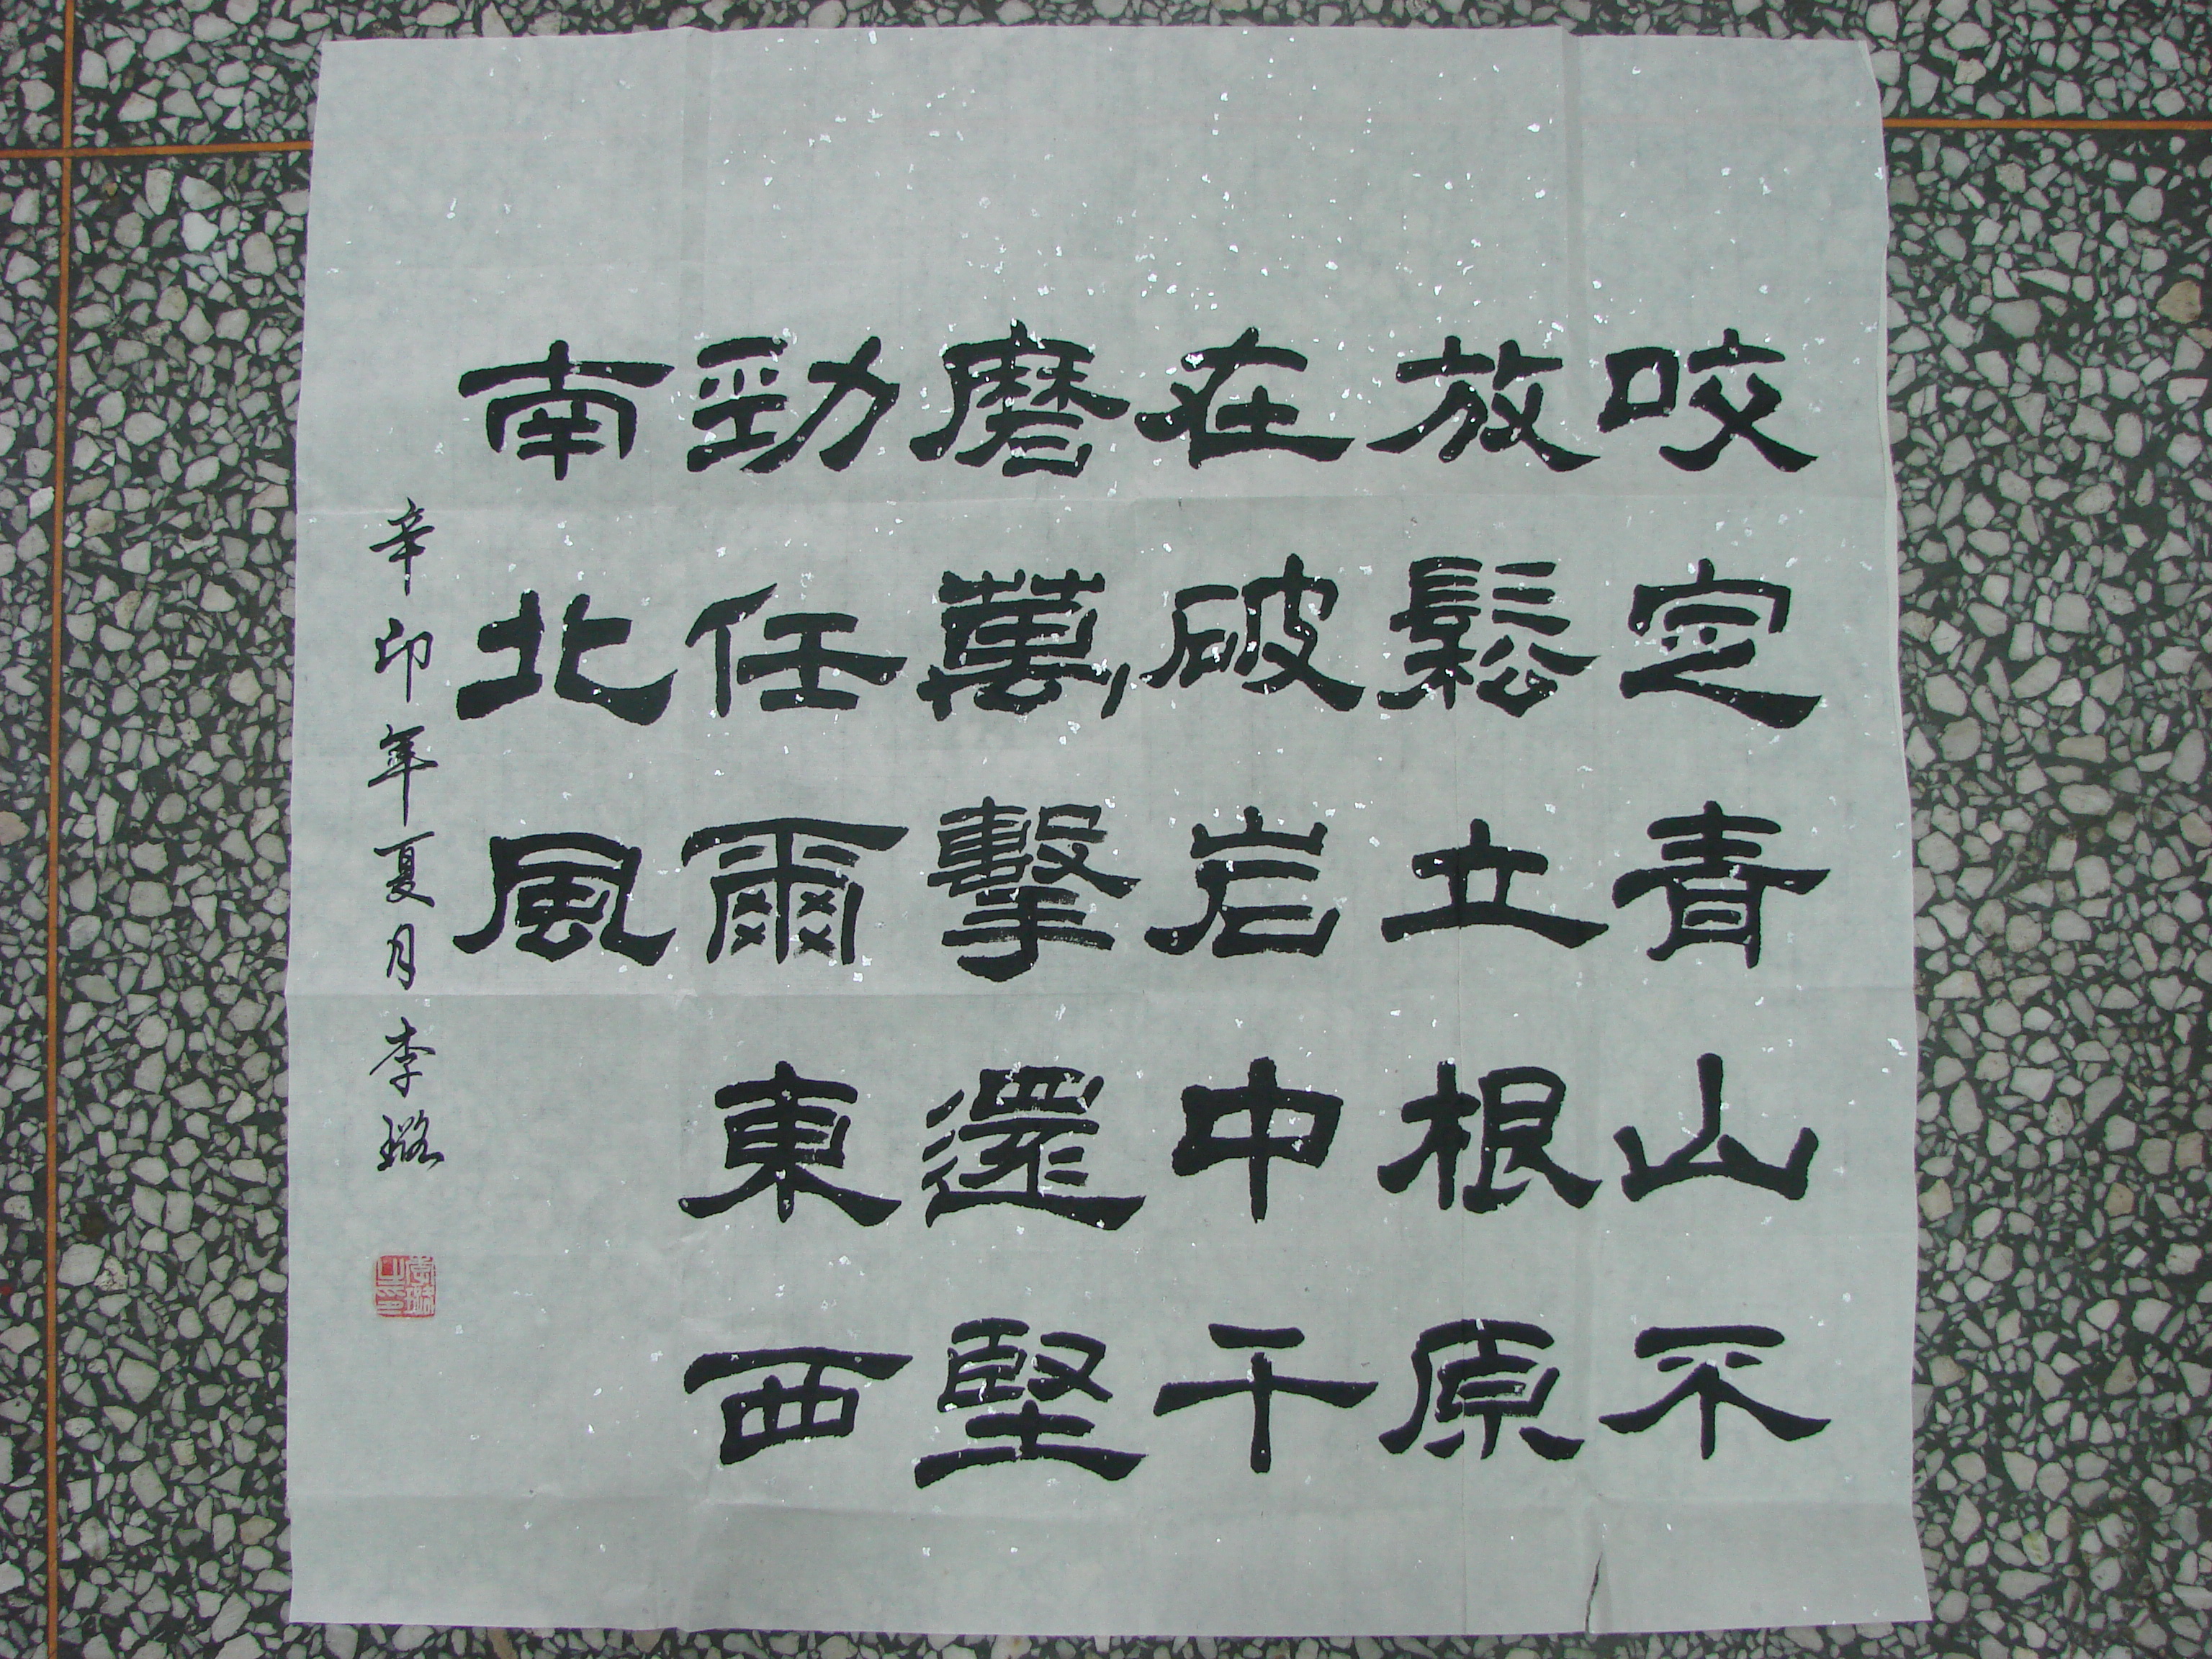 咬定青山不
放鬆立根原
在破岩中千
磨萬擊還堅
勁任爾東西
南北風
辛卯年夏月李璐